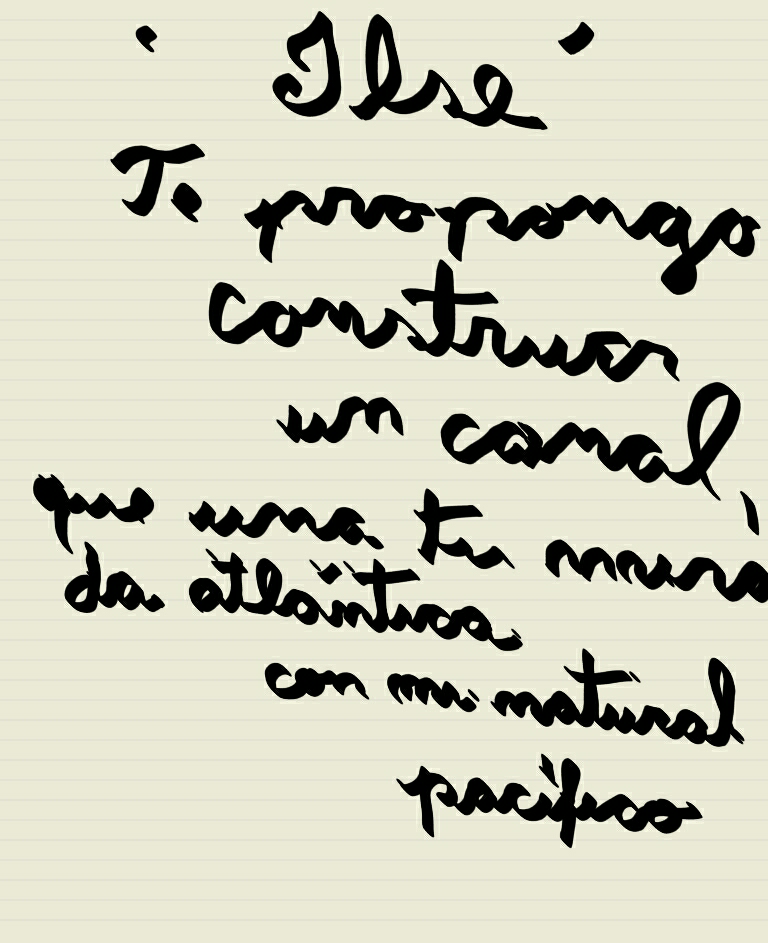 ' Ilse '
Te propongo
construir
un canal,
que una tu mira
da atlántica
con mi natural
pacífico